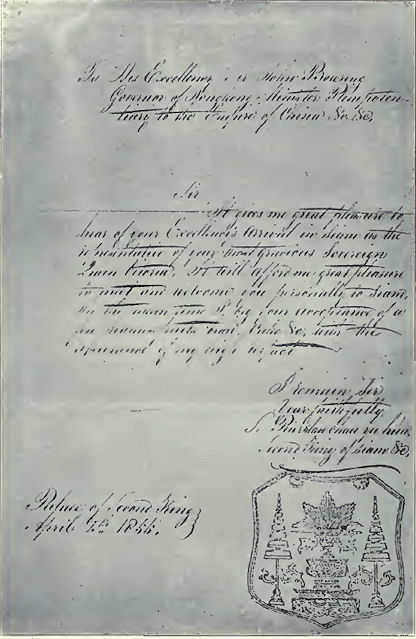 To His Excellency Sir John Bowring
Governor of Hongkong Minister Plenipoten-
tiary to the Empire of China &c &c,
Sir
It gives me great pleasure to
hear of your Excellency's arrival in Siam as the
representative of your most gracious Sovereign
Queen Victoria. It will afford me great pleasure
to meet and welcome you personally to Siam,
In the mean time I beg your acceptance of
&c and the
of my high respect
I remain, Sir
Your faithfully,
S.
Second King of Siam &c,
Palace of Second King
April 1855,